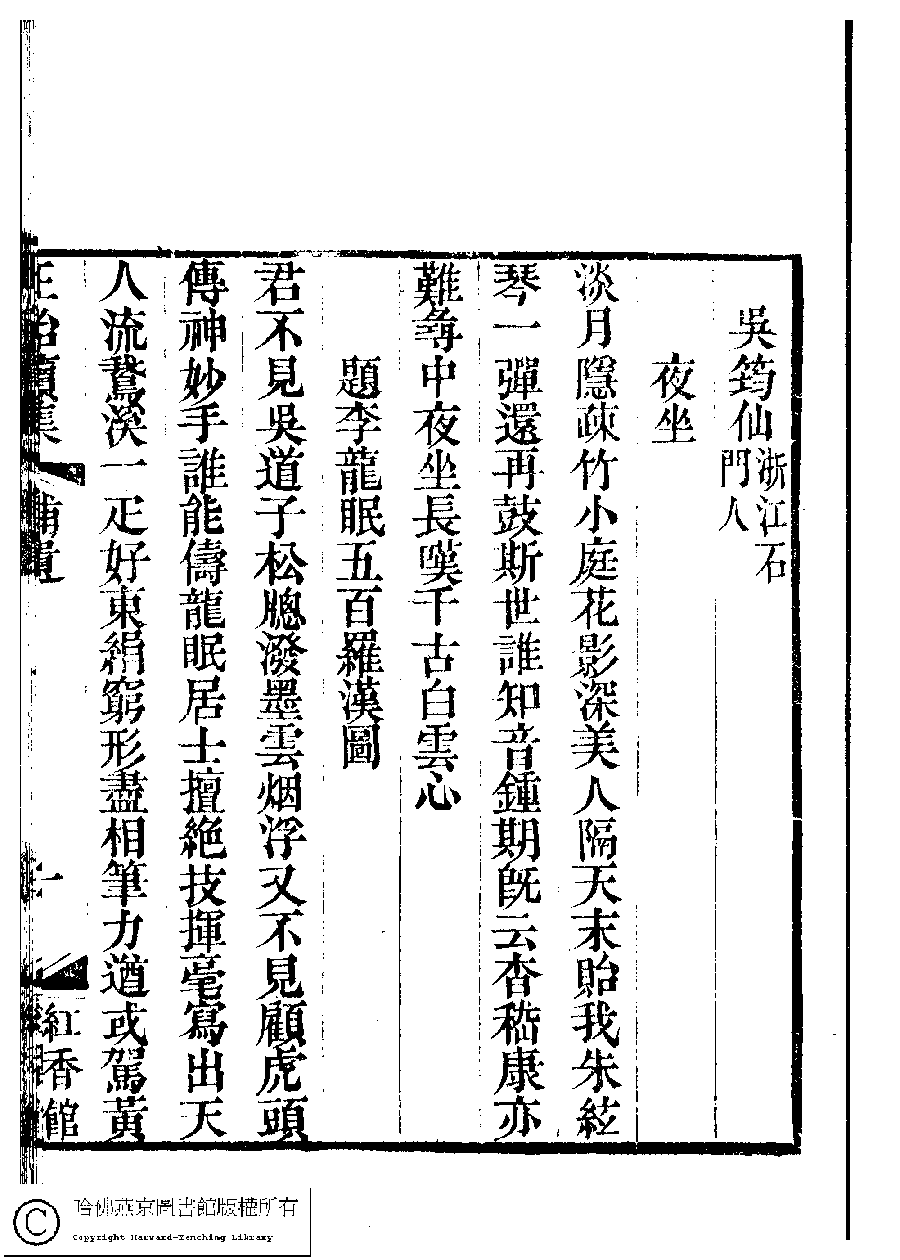 吳筠仙浙江石門人
夜坐
淡月隱疎竹小庭花影深美人隔天末貽我朱絃
琴一彈還再鼓斯世誰知音鍾期旣云杳嵇康亦
難尋中夜坐長嘆千古白雲心
題李龍眠五百羅漢圖
君不見吳道子松牕潑墨雲烟浮又不見顧虎頭
傳神妙手誰能儔龍眠居士擅絕技揮毫寫出天
人流鵞溪一疋好東絹窮形盡相筆力遒或駕黃
集
補遺
一
紅香館
哈佛燕京圖書館版權所有
Copyright Harvard-Yenching Library